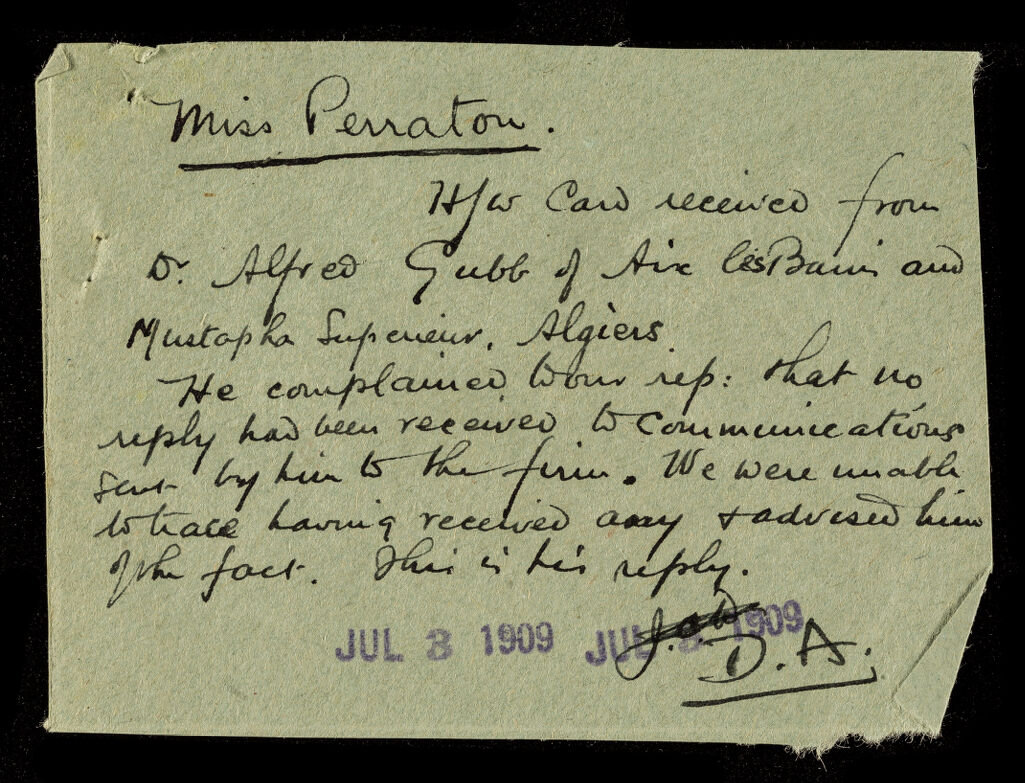 Miss Perraton.
H/w Card received from
Dr. Alfred Gubb of Aix les Bains and
Mustapha Superieur, Algiers
He complained to our rep: that no
reply had been received to communications
sent by him to the firm. We were unable
to trace having received any & advised him
of the fact. This is his reply.
JUL 3 1909 JUL 3 1909
D.A.